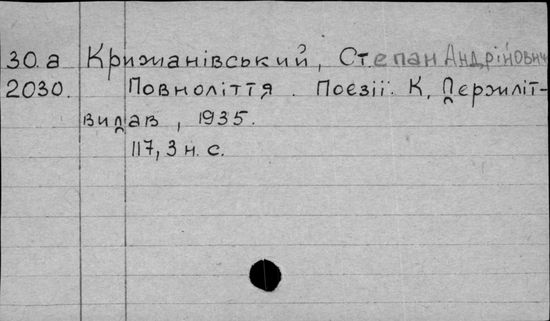 30.а Крижанівський, Степан Андрійович
2030. Повноліття. Поезії. К, Держліт-
видав, 1935.
117, 3 н. с.